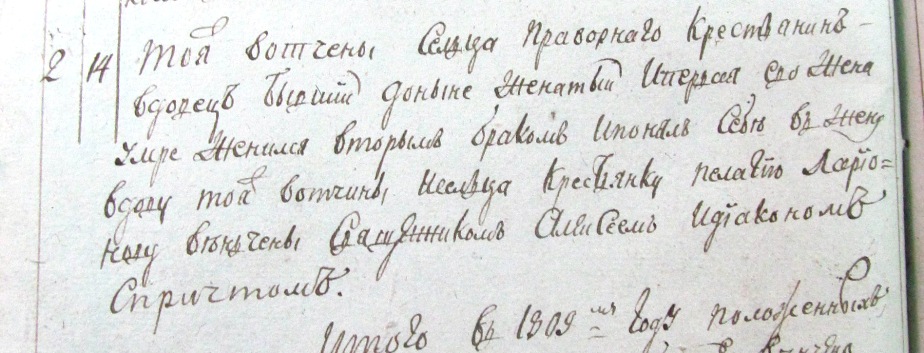 2 14 Тоя вотчены Селца Праворнаго Крестьянинъ
вдовецъ бывшій доныне женатый Ипервая его жена
умре женился вторымъ бракомъ Ипонялъ Себѣ въ жену
вдову тоя вотчины Крестьянку пелагію Ларіо=
нову венчены Священникомъ Идіакономъ
Спричтомъ.
Итого въ 1809 году положенныхъ